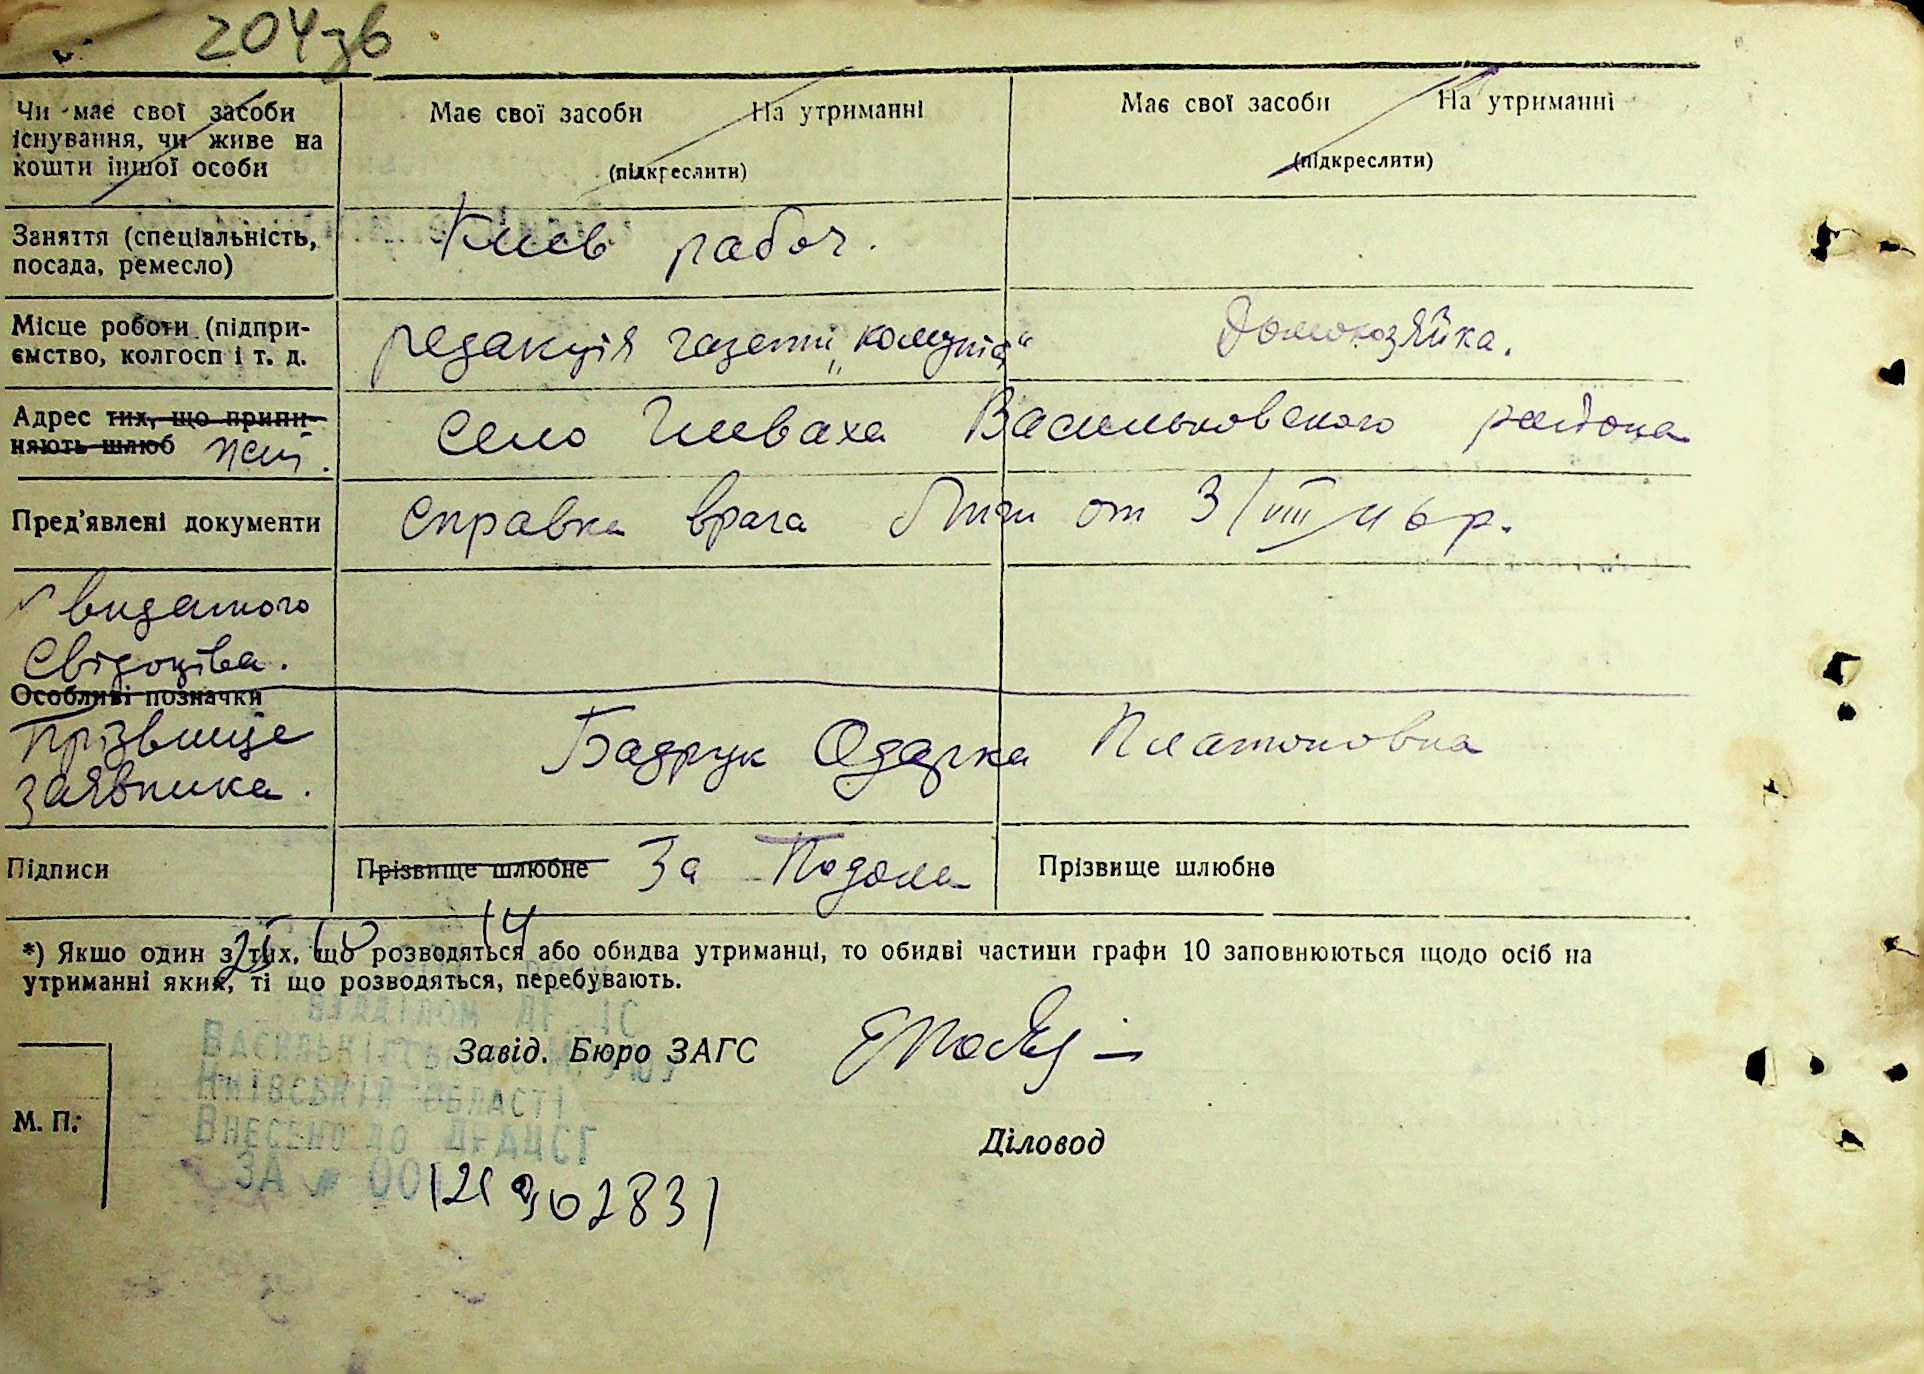 204зв
Чи має свої засоби існування, чи живе на кошти іншої особи
Має свої засоби На утриманні
(підкреслити)
Має свої засоби На утриманні
(підкреслити)
Заняття (спеціальність, посада, ремесло)
Киев рабоч.
Місце роботи (підприємство, колгосп і т. д.
редакція газети „комуніст“
Домохозяйка.
Адрес тих, що припиняють шлюб
село Глеваха Васильковского района
Пред'явлені документи
Справка врача от 3/VIII 46 р.
№ виданого
свідоцтва.
Особливі позначки
Прізвище
заявника.
Бадрук Одарка Платоновна
Підписи
Прізвище шлюбне За Подола
Прізвище шлюбне
*) Якщо один з тих, що розводяться або обидва утриманці, то обидві частини графи 10 заповнюються щодо осіб на
утриманні яких, ті що розводяться, перебувають.
25 10 14
Завід. Бюро ЗАГС
Київській області
Внесено до ДРАЦСГ
За № 00121902831
М. П.
Діловод